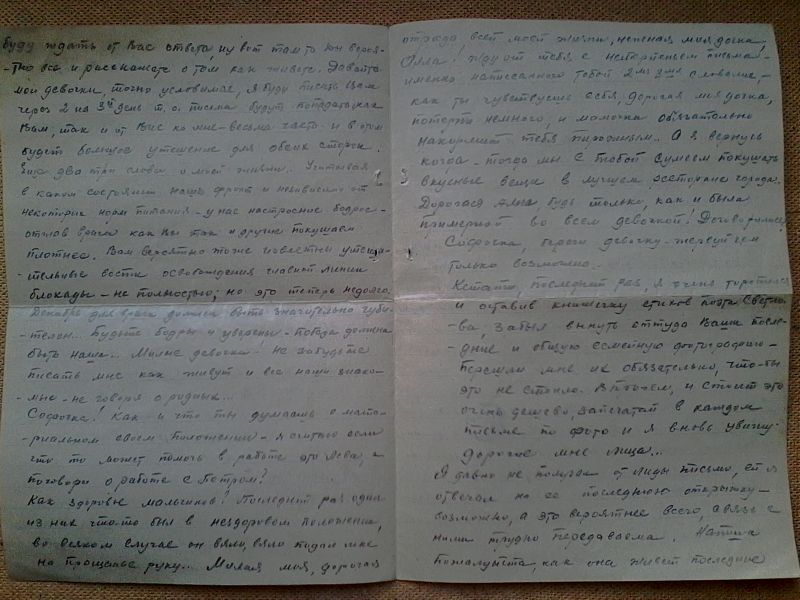 буду ждать от Вас ответа, ну вот там то Юн верои-
-тно все и расскажете о том как живете. Давайте
мои девочки, точно условимся, я буду писать Вам
через 2 на 3ий день т.о. письма будут попадать как
Вам, так и от Вас ко мне - весьма часто и в этом
будет большое утешение для обоих сторон.
Еще два три слова о моей жизни. Учитывая
в каком состоянии наш фронт и независимо от
некоторых норм питания - у нас настроение бодрое -
отогнав врага как Вы так и другие покушаем
плотнее. Вам вероятно тоже известны утеши-
-тельные вести освобождения главной линии
блокады - не полностью; но это теперь недолго.
Декабрь для врага должен быть значительно губи-
-телен... Будьте бодры и уверены - победа должна
быть наша... Милые девочки - не забудьте
писать мне как живут и все наши знако-
-мые - не говоря о родных...
Софочка! Как и что ты думаешь о мате-
-риальном своем положении - я считаю если
что то может помочь в работе это Лева, а
поговори о работе с Петром?
Как здоровье мальчиков? Последний раз один
из них что-то был в нездоровом положении,
во всяком случае он вяло, вяло подал мне
на прощанье руку... Милая моя, дорогая
отрада всей моей жизни, нежная моя дочка,
Алла! Жду от тебя с нетерпеньем письма -
именно написанного тобой 2мя 3мя словами, -
как ты чувствуешь себя, дорогая моя дочка,
потерпи немного, и мамочка обязательно
накормит тебя пирожным. А я вернусь
когда - тогда мы с тобой сумеем покушать
вкусные вещи в лучшем ресторане города.
Дорогая Алла, будь только, как и была
примерной во всем девочкой! Договорились
Софочка, береги девочку - жертвуй чем
только возможно.
Кстати, последний раз, я очень торопился
и оставив книжечку стихов поэта Светло-
-ва, забыл вынуть оттуда Ваши после-
-дние и общую семейную фотографию -
перешли мне их обязательно, что-бы
это не стоило. Впрочем, и стоит это
очень дешево, запечатай в каждом
письме по фото и я вновь увижу
дорогие мне лица...
Я давно не получал от Лиды письма, ей я
отвечал на ее последнюю открытку -
возможно, а это вероятнее всего, связь с
ними трудно передаваема. Напиши
пожалуйста, как она живет последние